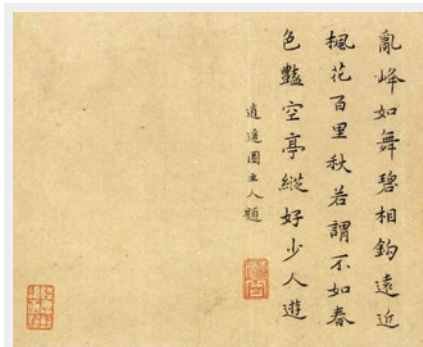 亂峰如舞碧相鈎遠近
楓花百里秋若謂不如春
色豔空亭縱好少人遊
逍遥園主人題